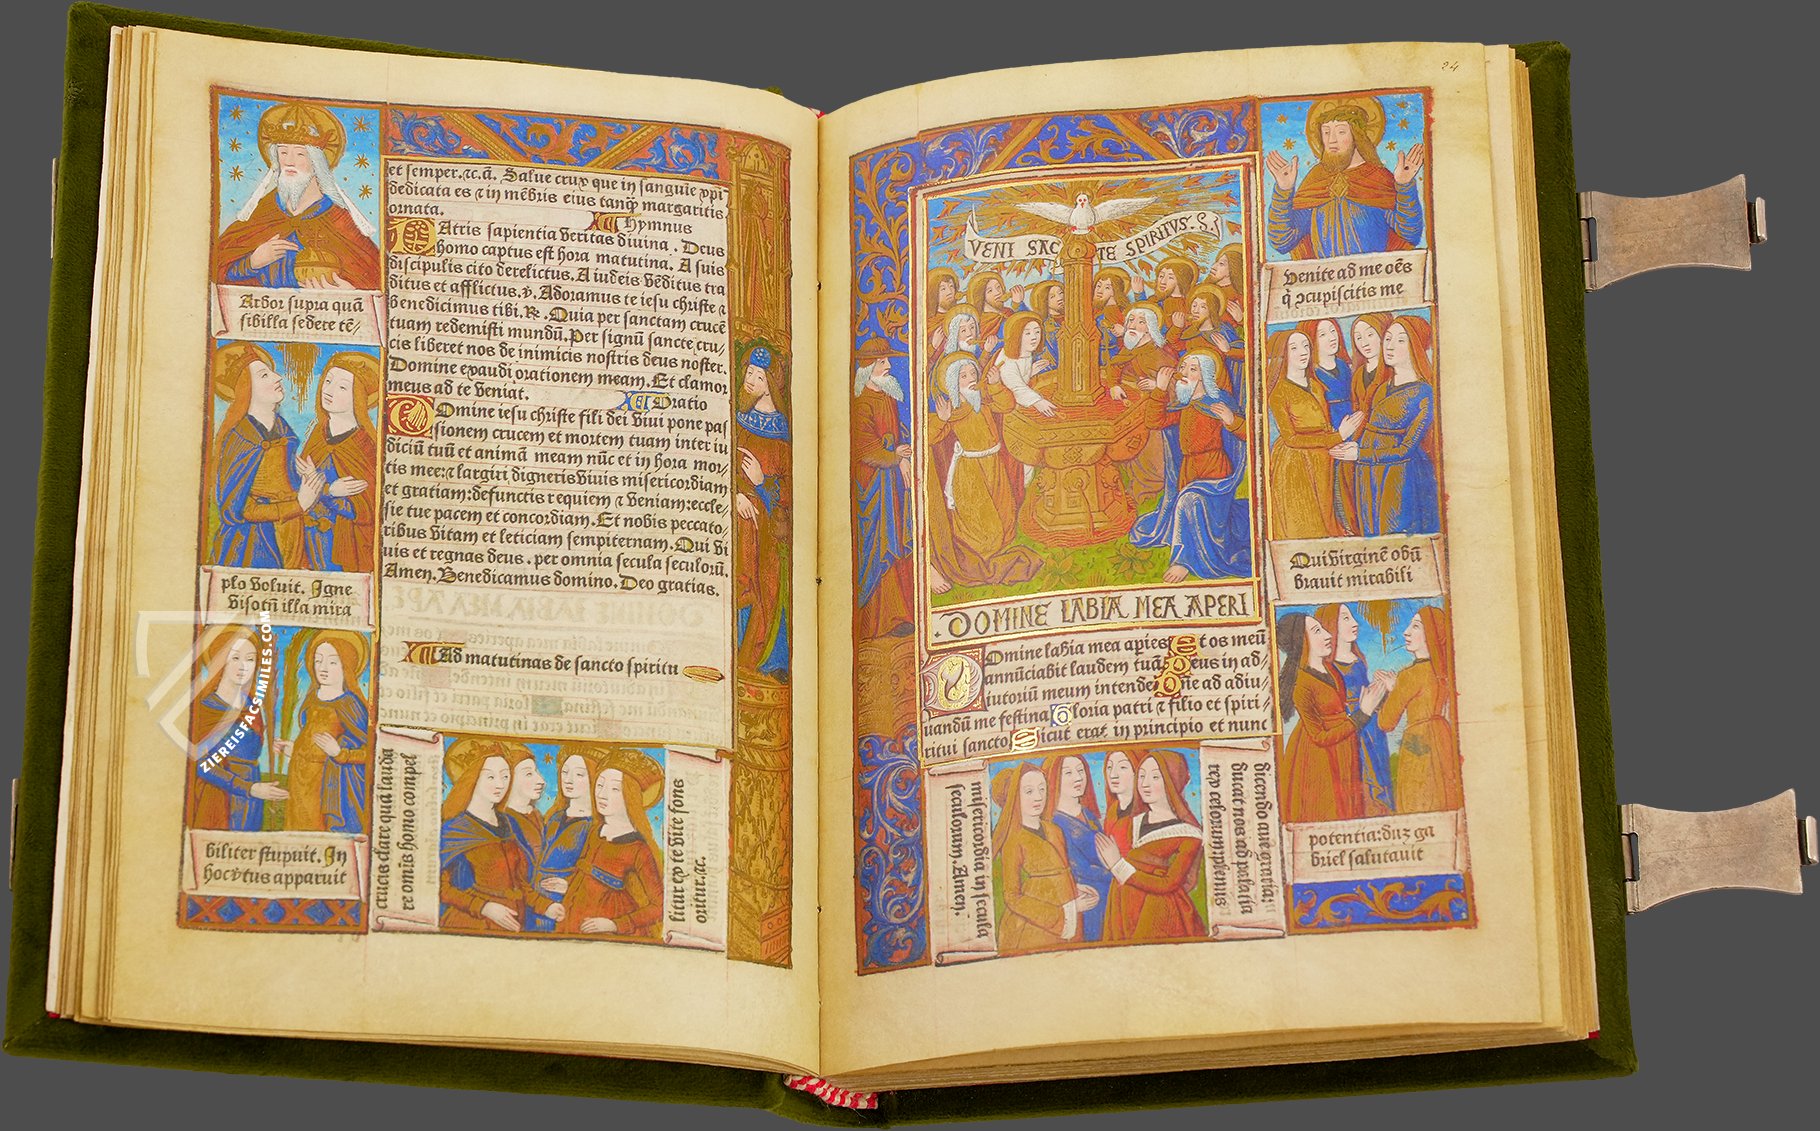 24
et semper. ⁊c. ā. Salue crux que in sanguie xpi
dedicata es ⁊ in mēbris eius tanq̄ margaritis
ornata.
Hymnus
PAtris sapientia veritas diuina. Deus
homo captus est hora matutina. A suis
discipulis cito derelictus. A iudeis vēditus tra
ditus et afflictus. v̄. Adoramus te iesu christe ⁊
benedicimus tibi. ℟. Quia per sanctam crucē
tuam redemisti mundū. Per signū sancte cru/
cis liberet nos de inimicis nostris deus noster.
Domine exaudi orationem meam. Et clamor
meus ad te veniat.
Oratio
DOmine iesu christe fili dei viui pone pas
sionem crucem et mortem tuam inter iu
diciū tuū et animā meam nūc et in hora mor/
tis mee: ⁊ largiri digneris viuis misericordiam
et gratiam: defunctis requiem ⁊ veniam: eccle/
sie tue pacem et concordiam. Et nobis peccato/
ribus vitam et leticiam sempiternam. Qui vi
uis et regnas deus. per omnia secula seculorū.
Amen. Benedicamus domino. Deo gratias.
Ad matutinas de sancto spiritu
Arbor supra quā
sibilla sedere tē/
plo voluit. Igne
visotn̄ illa mira
biliter stupuit. In
hoc v̄tus apparuit
crucis clare quā lauda
re omis homo compel
litur ex te vite fons
oritur. ⁊c.
ZIEREISFACSIMILES.COM
VENI SAC TE SPIRITVS. S.
DOMINE LABIA MEA APERI
DOmine labia mea apries Et os meū
annūciabit laudem tuā Deus in ad/
iutoriū meum intende Dn̄e ad adiu/
uandū me festina Gloria patri ⁊ filio et spiri/
ritui sancto Sicut erat in principio et nunc
Venite ad me oēs
q̄ ɔcupiscitis me
Qui virginē obū
bravit mirabili
potentia: duz ga
briel salutauit
dicendo aue gratia:
ducat nos ad palatia
rex celorum plenus
misericordia in secula
seculorum. Amen.